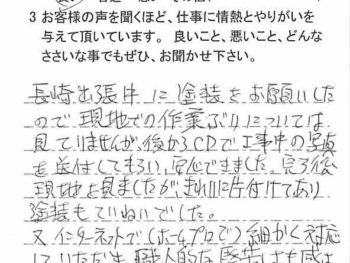 3 お客様の声を聞くほど、仕事に情熱とやりがいを
与えて頂いています。良いこと、悪いこと、どんな
ささいな事でもぜひ、お聞かせ下さい。
長崎出張中に塗装をお願いした
ので現地での作業ぶりについては
見ていませんが、後からCDで工事中の写真
を送付してもらい、安心できました。完了後
現地を見ましたが、きれいに片付けてあり
塗装もていねいでした。
又インターネットで(ホームプロで)細かく対応
していただき、職人的な